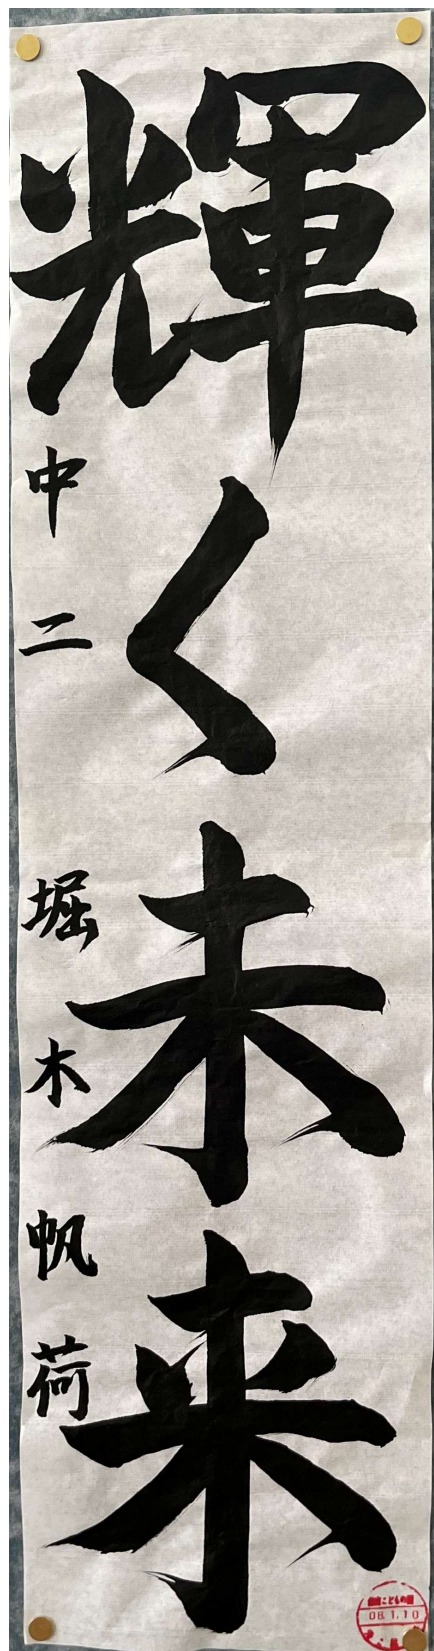 輝く未来
中二 堀木帆荷
08.1.10